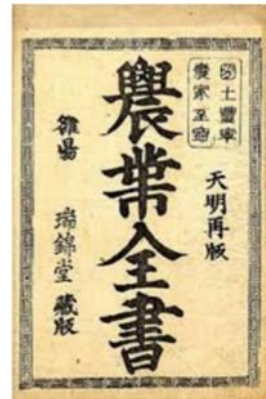 國土豊寧
農家至宝
天明再版
農業全書
雒陽
瑞錦堂 藏版